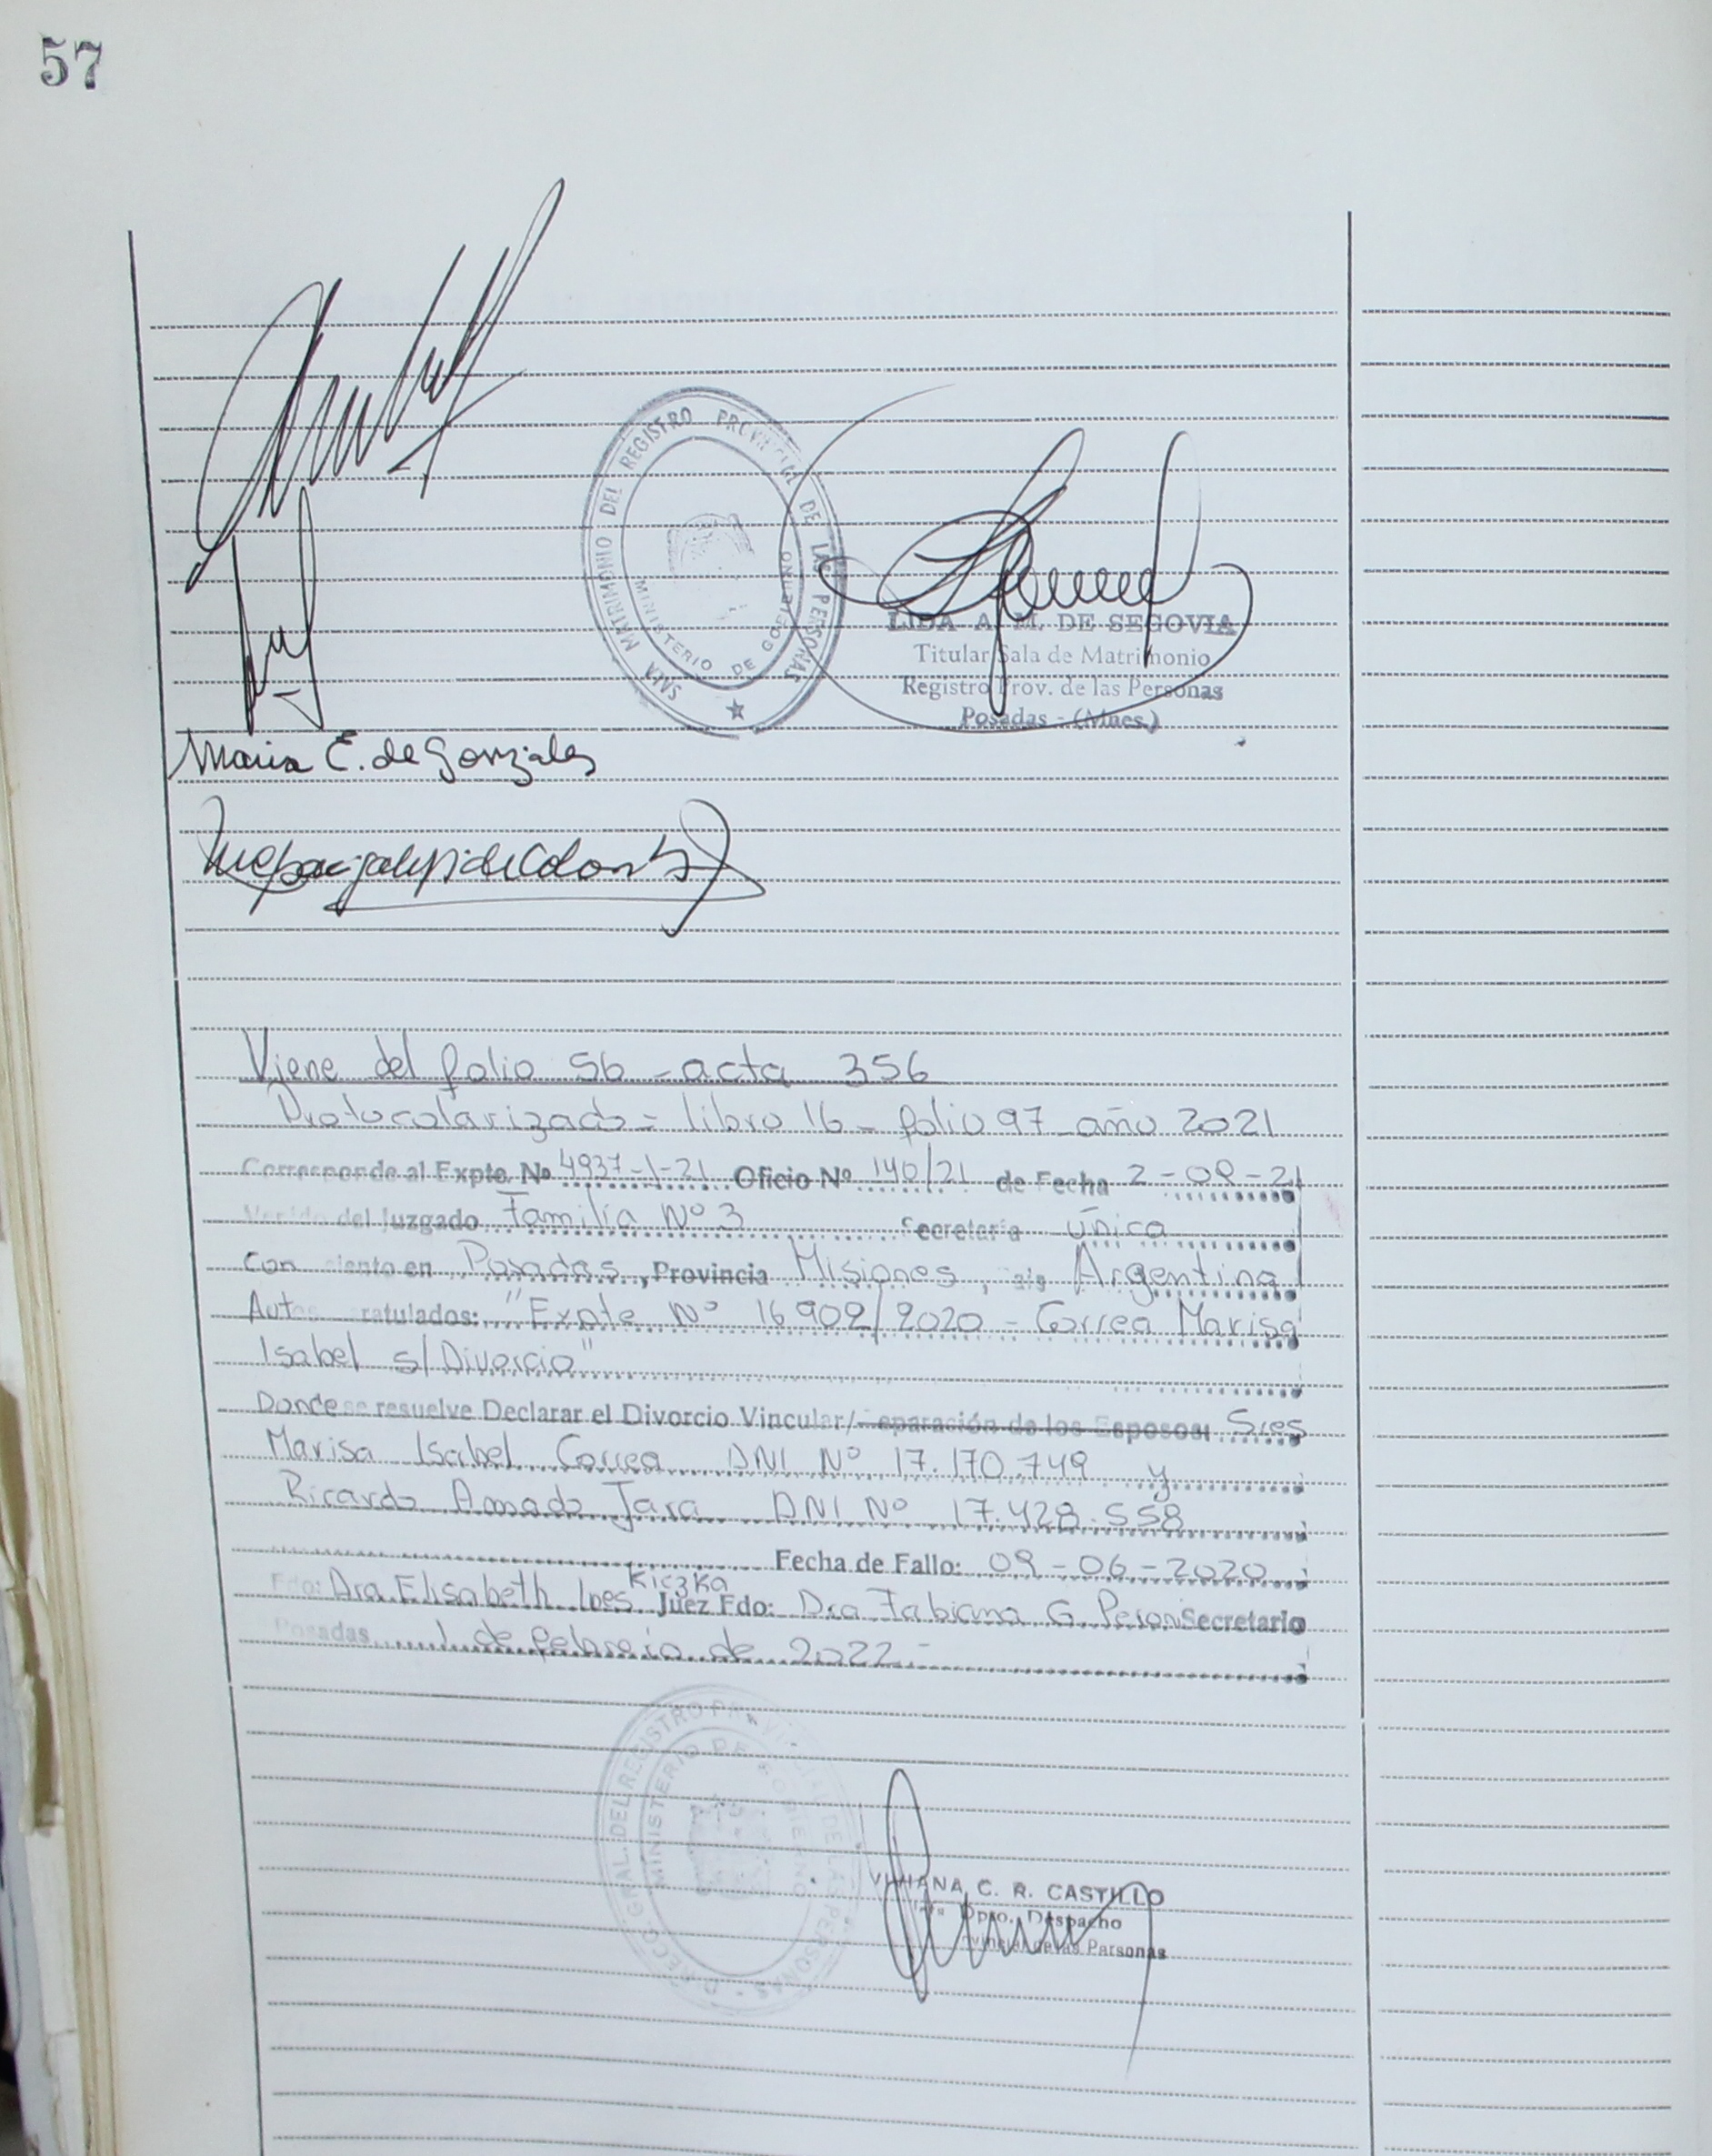 57
SALA MATRIMONIO DEL REGISTRO PROVINCIAL DE LAS PERSONAS
MINISTERIO DE GOBIERNO
LIDA A. M. DE SEGOVIA
Titular Sala de Matrimonio
Registro Prov. de las Personas
Posadas - (Mnes.)
Maria E. de Gonzales
Viene del folio 56 - acta 356
Protocolarizado = libro 16 - folio 97 año 2021
Corresponde al Expte. Nº 4937-1-21 Oficio Nº 140/21 de Fecha 2-09-21
Venido del Juzgado Familia Nº 3 Secretaria Única
Con siento en Posadas, Provincia Misiones, país Argentina
Autos caratulados: "Expte Nº 16902/2020 - Correa Marisa
Isabel s/Divorcio"
Donde se resuelve Declarar el Divorcio Vincular/Separación de los Esposos: Sres
Marisa Isabel Correa DNI Nº 17.170.749 y
Ricardo Amado Jara DNI Nº 17.428.558
Fecha de Fallo: 09-06-2020
Fdo: Dra Elisabeth Ines Kiczka Juez Fdo: Dra Fabiana G. Peron Secretario
Posadas 1 de Febrero de 2022.-
DIRECC. GRAL. DEL REGISTRO PROVINCIAL DE LAS PERSONAS
MINISTERIO DE GOBIERNO
VIVIANA C. R. CASTILLO
Dpto. Despacho
Provincial de las Personas